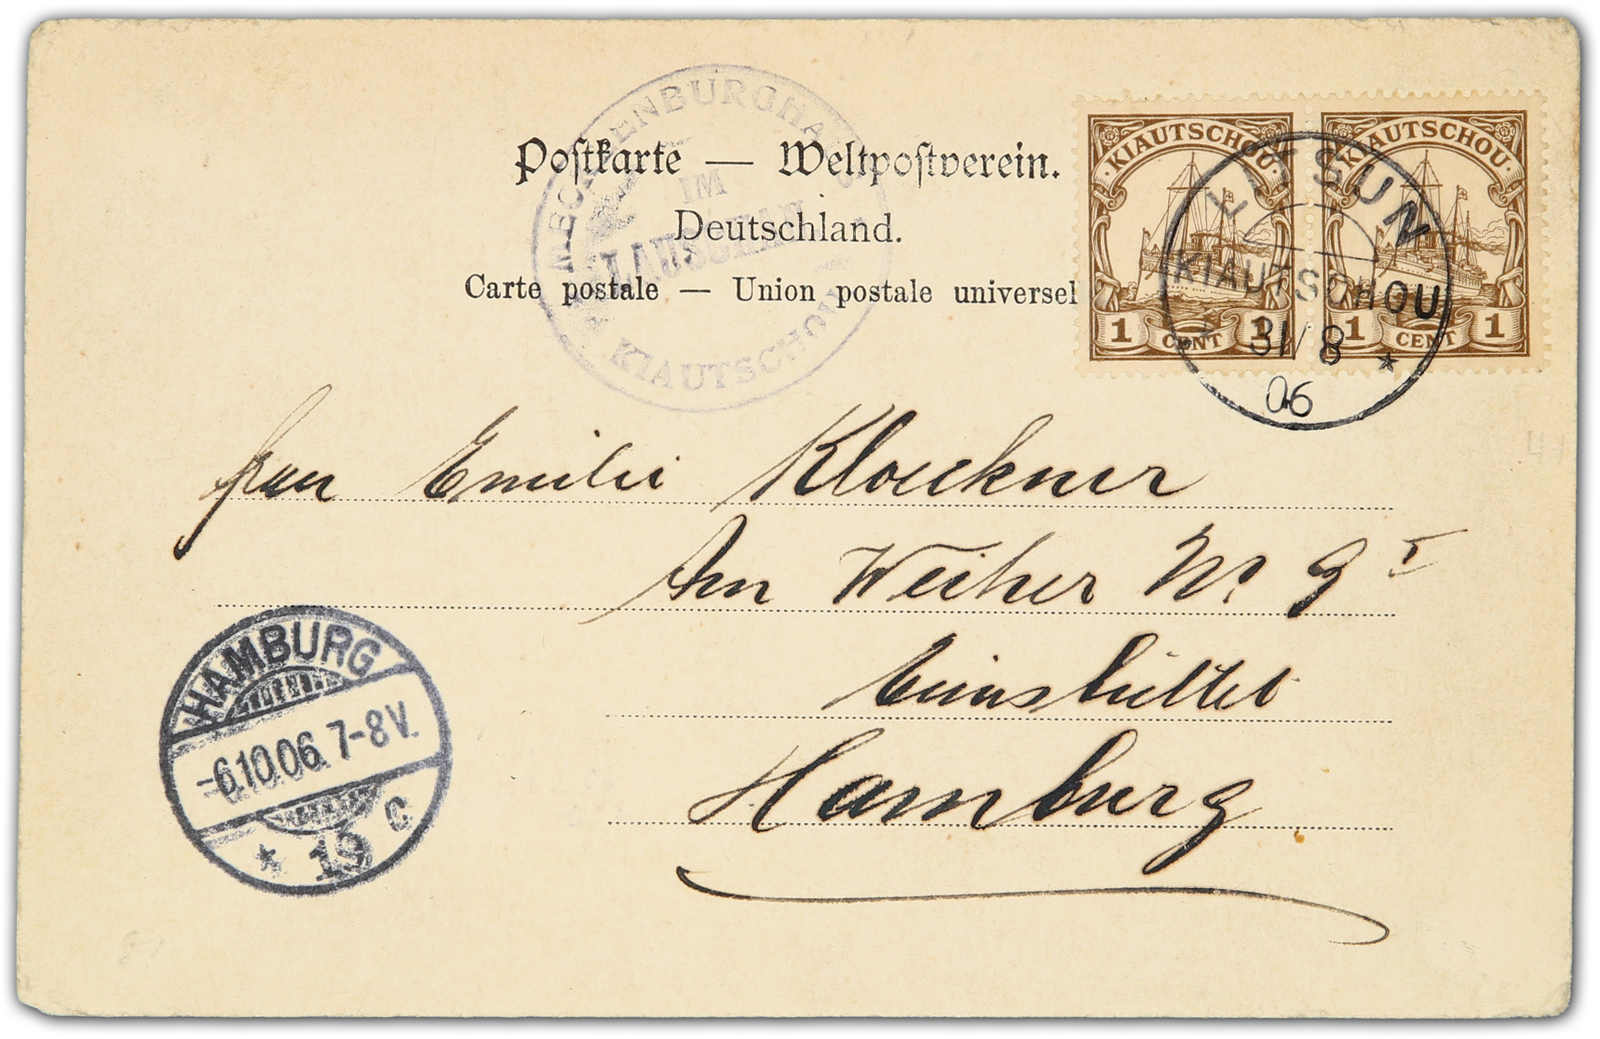 Postkarte — Weltpostverein.
Deutschland.
Carte postale — Union postale universel
MECKLENBURGHAUS
IM
LAUSCHAN
KIAUTSCHOU
KIAUTSCHOU
1 CENT 1
KIAUTSCHOU
1 CENT 1
LITSUN
KIAUTSCHOU
31/8
06
Frau Emilie Kloeckner
Am Weiher Nr 9 I
Eimsbüttel
Hamburg
HAMBURG
-6.10.06. 7-8 V.
* 19 c